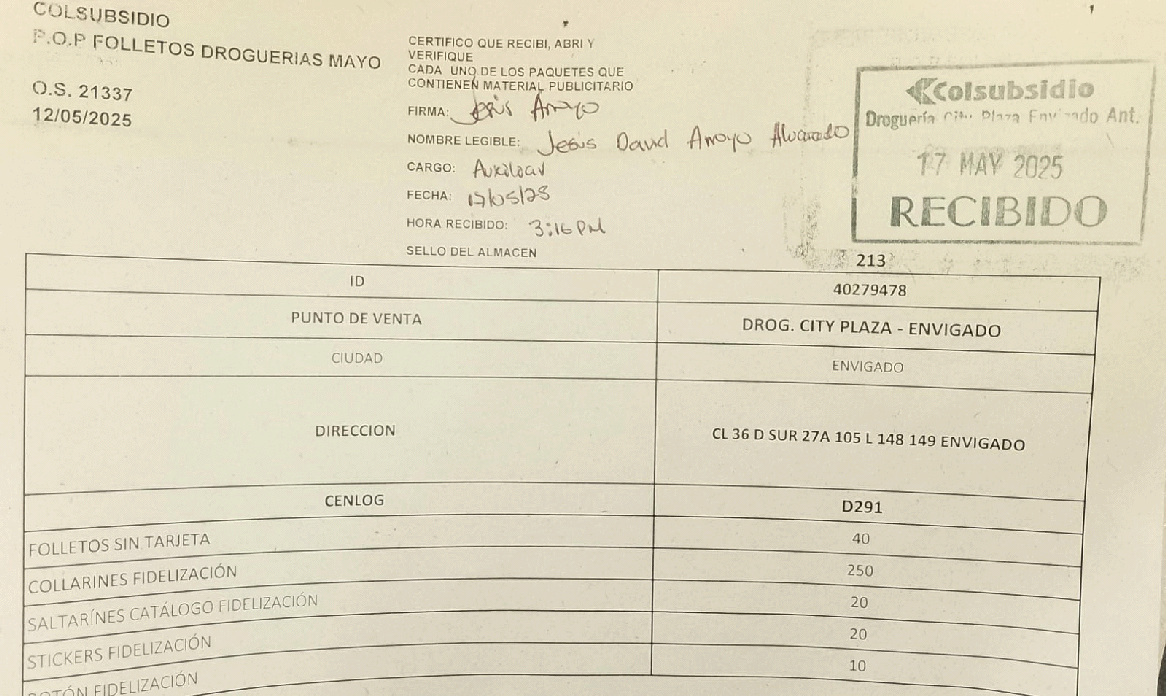 COLSUBSIDIO
P.O.P FOLLETOS DROGUERIAS MAYO
O.S. 21337
12/05/2025
CERTIFICO QUE RECIBI, ABRI Y
VERIFIQUE
CADA UNO DE LOS PAQUETES QUE
CONTIENEN MATERIAL PUBLICITARIO
FIRMA: Jesús Arroyo
NOMBRE LEGIBLE: Jesús David Arroyo Alvarado
CARGO: Auxiliar
FECHA: 17/05/25
HORA RECIBIDO: 3:16 PM
SELLO DEL ALMACEN
Colsubsidio
Droguería City Plaza Envigado Ant.
17 MAY 2025
RECIBIDO
213
ID 40279478
PUNTO DE VENTA DROG. CITY PLAZA - ENVIGADO
CIUDAD ENVIGADO
DIRECCION CL 36 D SUR 27A 105 L 148 149 ENVIGADO
CENLOG D291
FOLLETOS SIN TARJETA 40
COLLARINES FIDELIZACIÓN 250
SALTARÍNES CATÁLOGO FIDELIZACIÓN 20
STICKERS FIDELIZACIÓN 20
BOTÓN FIDELIZACIÓN 10